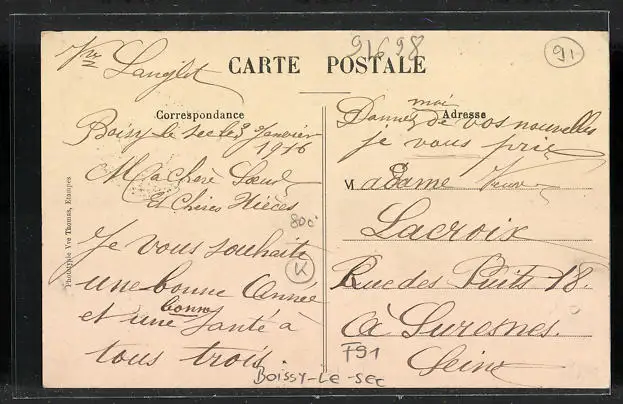 Vve Langlet
91698
91
CARTE POSTALE
Correspondance
Adresse
Boissy le sec le 3 Janvier
1916
Ma chère Soeur
Et chères Nièces
Je vous souhaite
une bonne Année
et une bonne Santé à
tous trois.
800
K
Donnez moi de vos nouvelles
je vous prie
Madame Veuve
Lacroix
Rue des Puits 18.
à Suresnes.
Seine
F91
BOISSY-LE-SEC
Phototypie Vve Thomas, Etampes